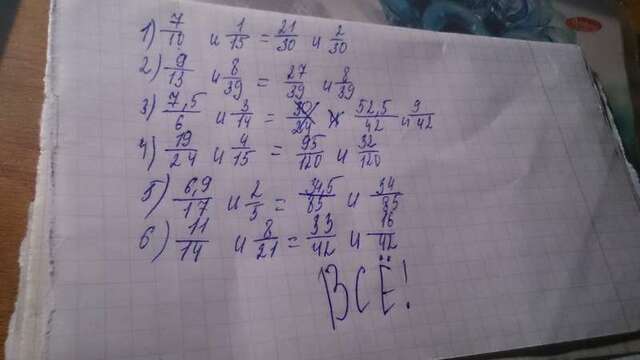 1) 7/10 и 1/15 = 21/30 и 2/30
2) 9/13 и 8/39 = 27/39 и 8/39
3) 7,5/6 и 3/14 = и 52,5/42 и 9/42
4) 19/24 и 4/15 = 95/120 и 32/120
5) 6,9/17 и 2/5 = 34,5/85 и 34/85
6) 11/14 и 8/21 = 33/42 и 16/42
ВСЁ!